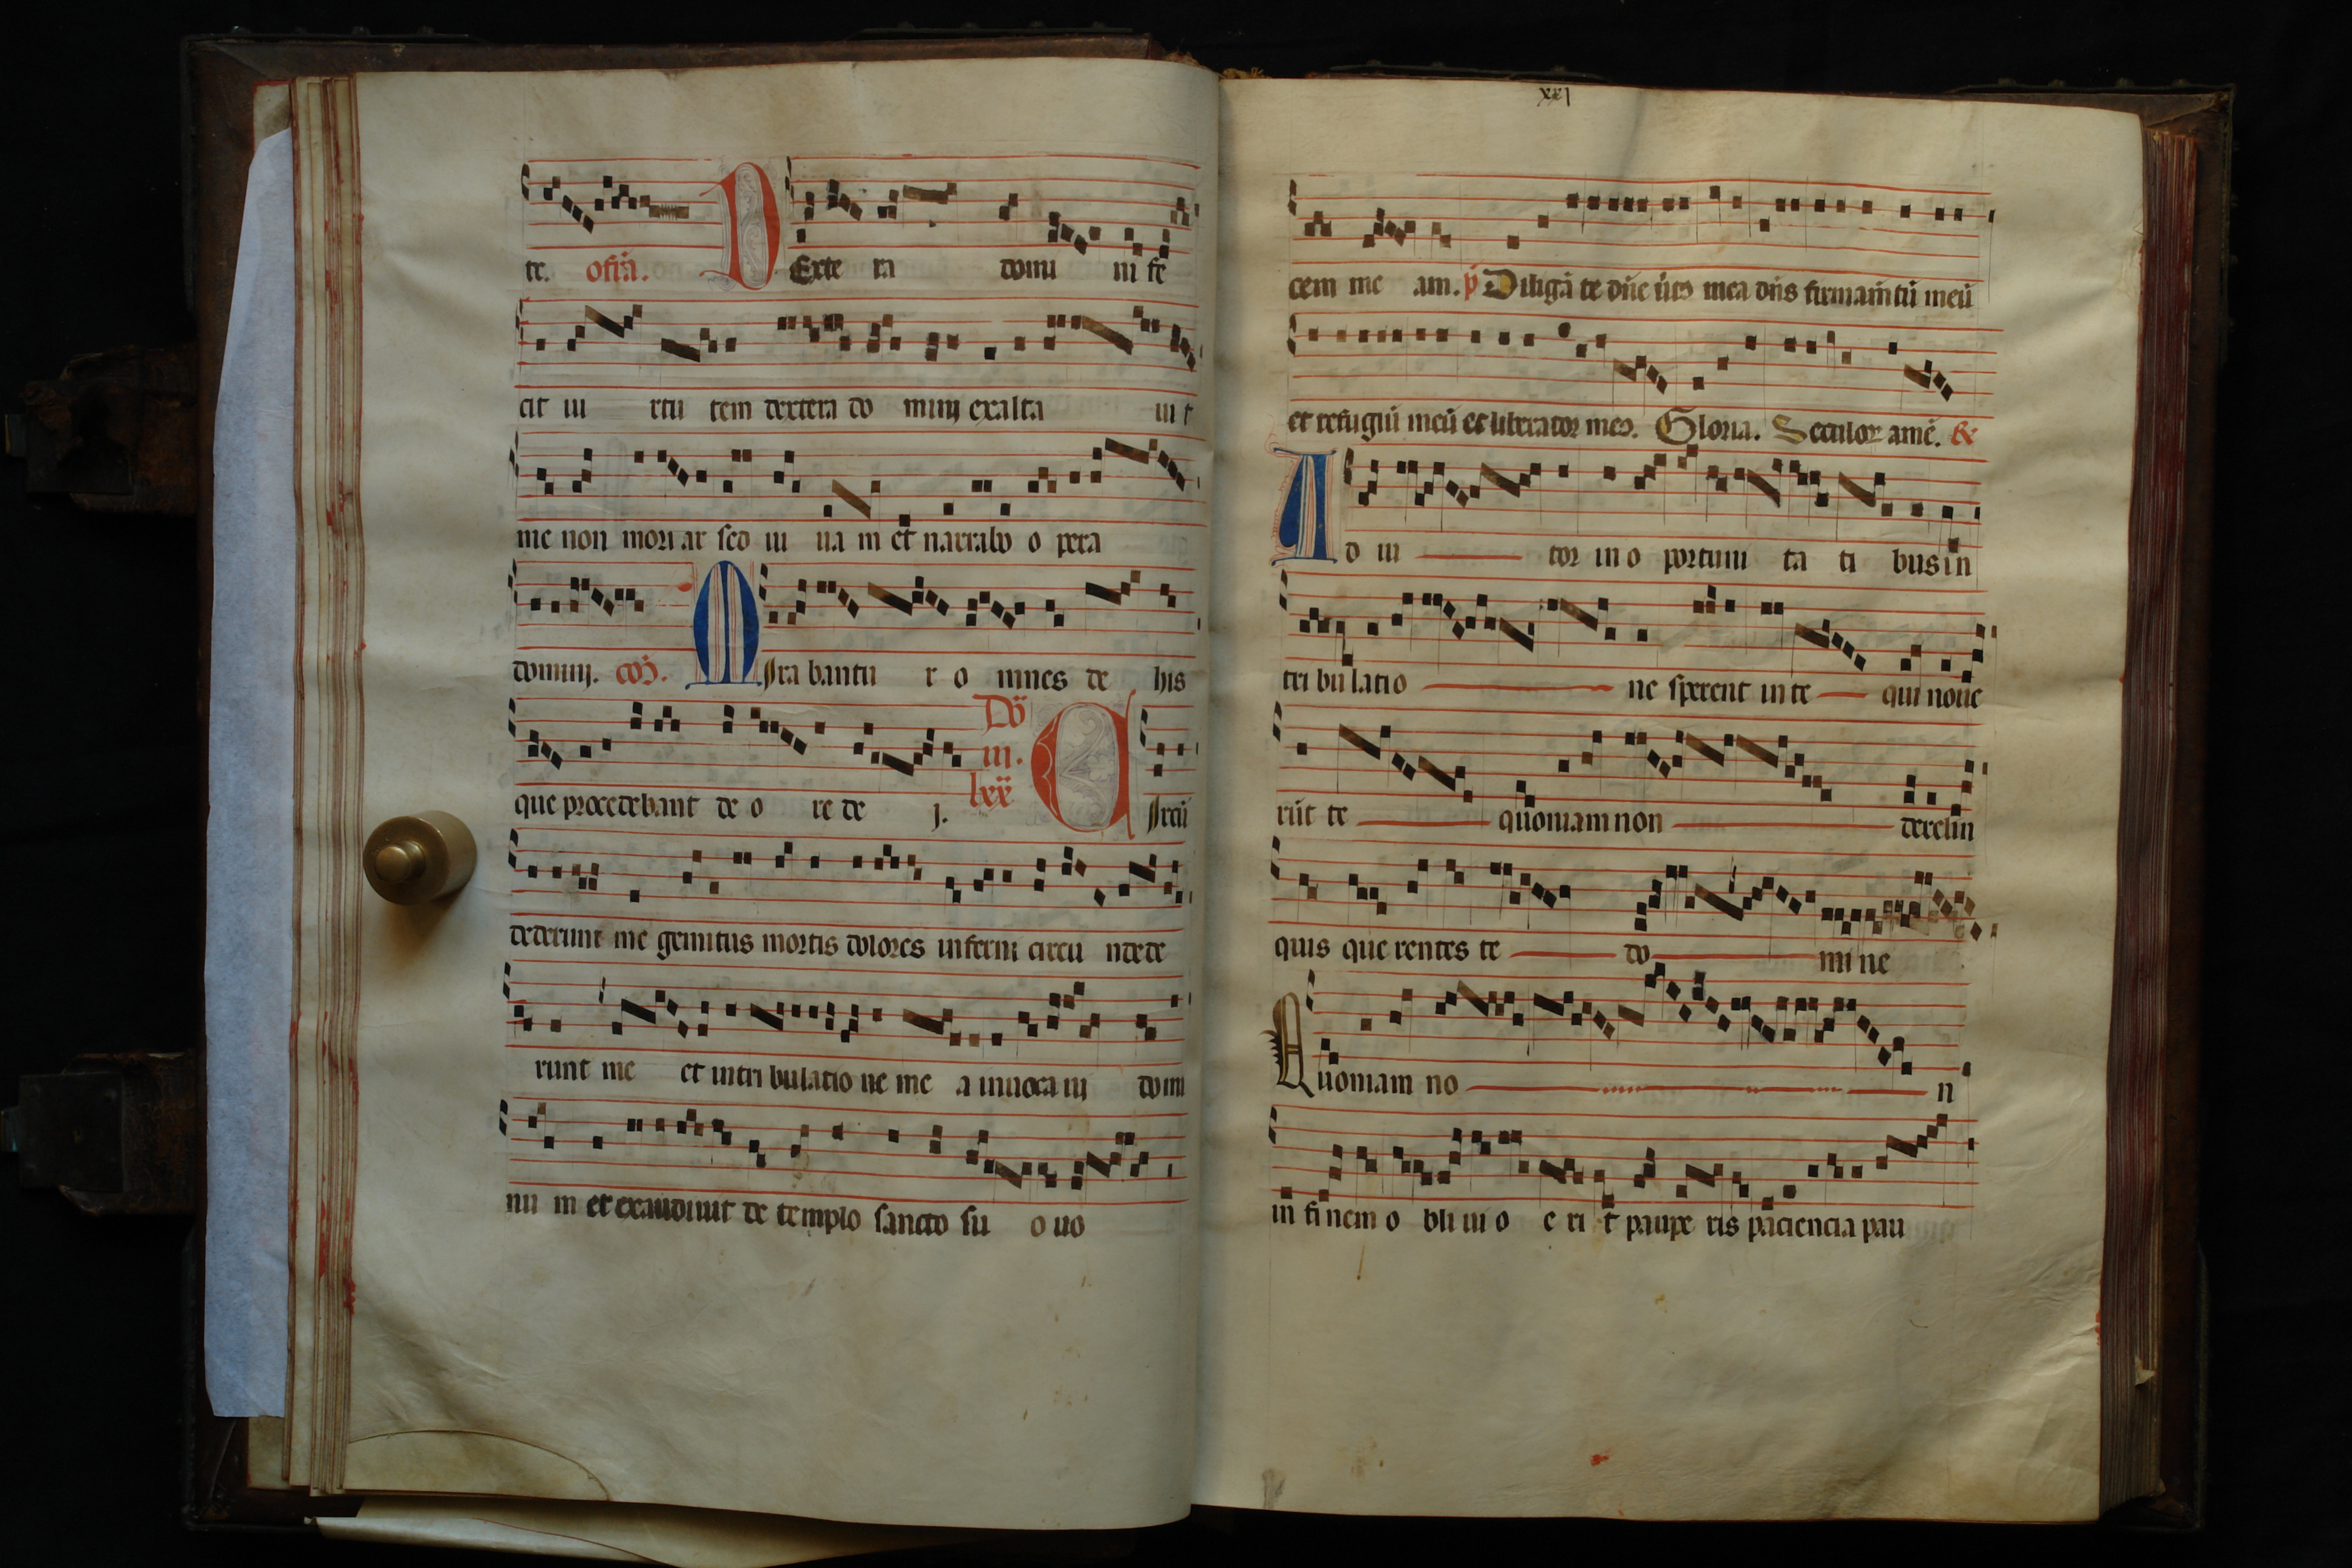 te. offã. DExte ra domi ni fe
cit ui rtu tem dextera do minj exalta ui t
me non mori ar sed ui ua m et narrabo o pera
dominj. coõ. MIra bantu r o mnes de his
que procedebant de o re de j. Dõ in. lxx CIrcũ
dederunt me gemitus mortis dolores inferni circu ndede
runt me et in tri bulatio ne me a inuoca ui domi
nu m et exaudiuit de templo sancto su o uo
xxj
cem me am. p̃ Diligã te dñe ũtꝰ mea dñs firmam̃tũ meũ
et refugiũ meũ et liberator meꝰ. Gloria. Seculoꝝ amẽ. R̃
AD iu tor in o portuni ta ti bus in
tri bu latio ne sperent in te qui noue
rũt te quoniam non derelin
quis que rentes te do mi ne
Quoniam no n
in fi nem o bli ui o e ri t paupe ris paciencia pau